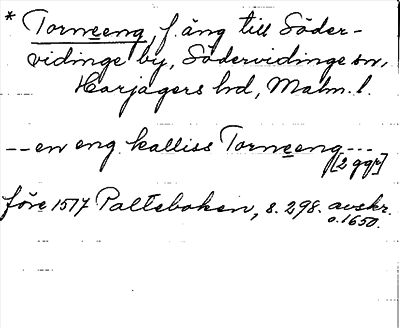 * Torneeng, f. äng till Söder-
vidinge by, Södervidinge sn,
Harjagers hd, Malm. l.
-- en eng kalliss Torneeng ---
[2 ggr]
före 1517 Palteboken, s. 298. avskr.
o. 1650.